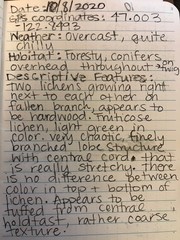 Date: 10/8/2020
GPS coordinates: 47.003
-122.8993
Weather: Overcast, quite
chilly
Habitat: foresty, conifers
overhead throughout on twig
Descriptive Features:
two lichens growing right
next to each other on
fallen branch, appears to
be hardwood. Fruticose
lichen, light green
color. very chaotic, finely
branched lobe structure
with central cord that
is really stretchy. There
is no difference between
color in top + bottom of
lichen. Appears to be
tufted from central
holdfast, rather coarse
texture.